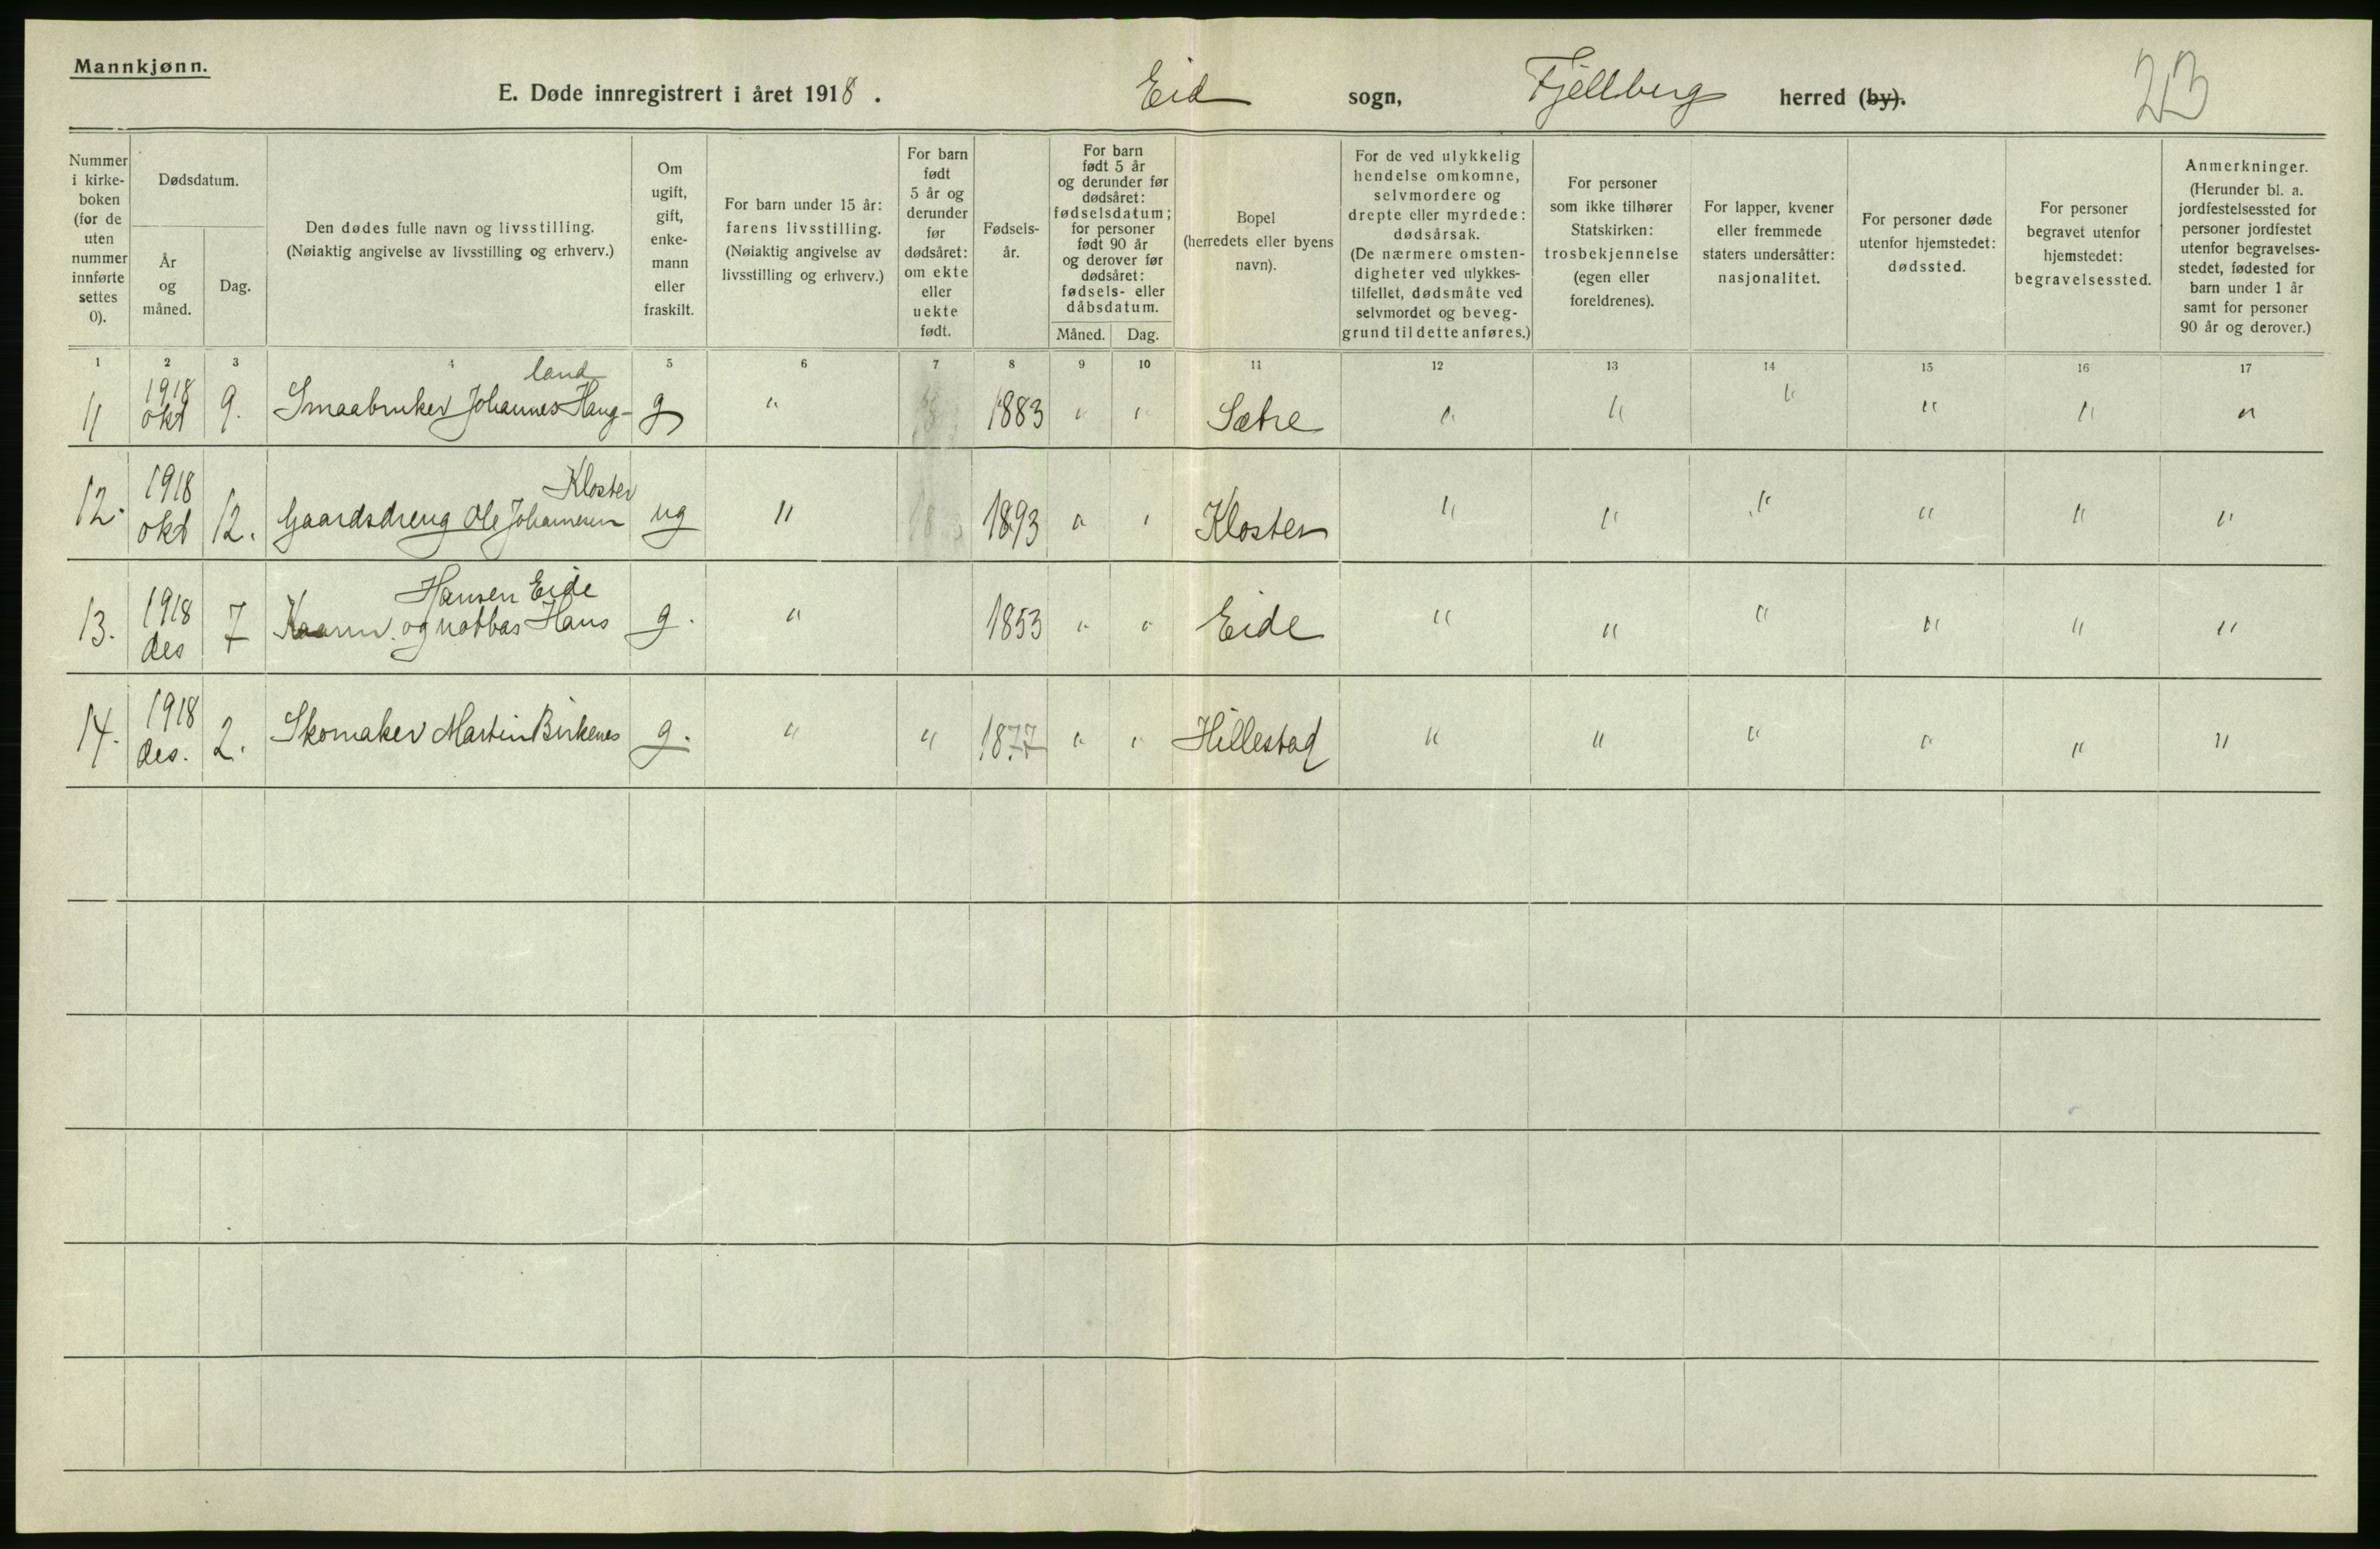 Mannkjønn.
E. Døde innregistrert i året 1918. Eid sogn, Fjellberg herred (by). 23
Nummer i kirke-boken (for de uten nummer innførte settes 0).
Dødsdatum.
År og måned.
Dag.
Den dødes fulle navn og livsstilling. (Nøiaktig angivelse av livsstilling og erhverv.)
Om ugift, gift, enke-mann eller fraskilt.
For barn under 15 år: farens livsstilling. (Nøiaktig angivelse av livsstilling og erhverv.)
For barn født 5 år og derunder før dødsåret: om ekte eller uekte født.
Fødsels-år.
For barn født 5 år og derunder før dødsåret: fødselsdatum; for personer født 90 år og derover før dødsåret: fødsels- eller dåbsdatum.
Måned. Dag.
Bopel (herredets eller byens navn).
For de ved ulykkelig hendelse omkomne, selvmordere og drepte eller myrdede: dødsårsak. (De nærmere omsten-digheter ved ulykkes-tilfellet, dødsmåte ved selvmordet og beveg-grund til dette anføres.)
For personer som ikke tilhører Statskirken: trosbekjennelse (egen eller foreldrenes).
For lapper, kvener eller fremmede staters undersåtter: nasjonalitet.
For personer døde utenfor hjemstedet: dødssted.
For personer begravet utenfor hjemstedet: begravelsessted.
Anmerkninger. (Herunder bl. a. jordfestelsessted for personer jordfestet utenfor begravelses-stedet, fødested for barn under 1 år samt for personer 90 år og derover.)
1 2 3 4 5 6 7 8 9 10 11 12 13 14 15 16 17
land
11 1918 okt 9. Smaabruker Johannes Haug- g " 1883 " " Sætre " " " " " "
Kloster
12. 1918 okt 12. Gaardsdreng Ole Johannesen ug " 1893 " " Kloster " " " " " "
Hansen Eide
13. 1918 des 7 og notbas Hans g. " 1853 " " Eide " " " " " "
14. 1918 des. 2. Skomaker Martin Birkenes g. " " 1877 " " Hillestad " " " " " "